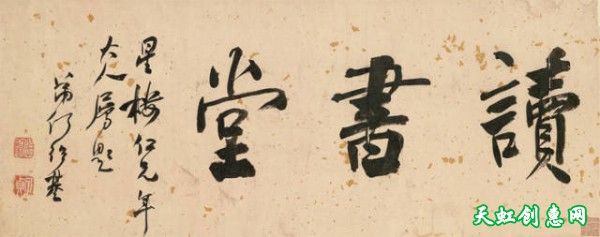 讀書堂
星仁兄年
大人屬題
弟何紹基
天虹创惠网